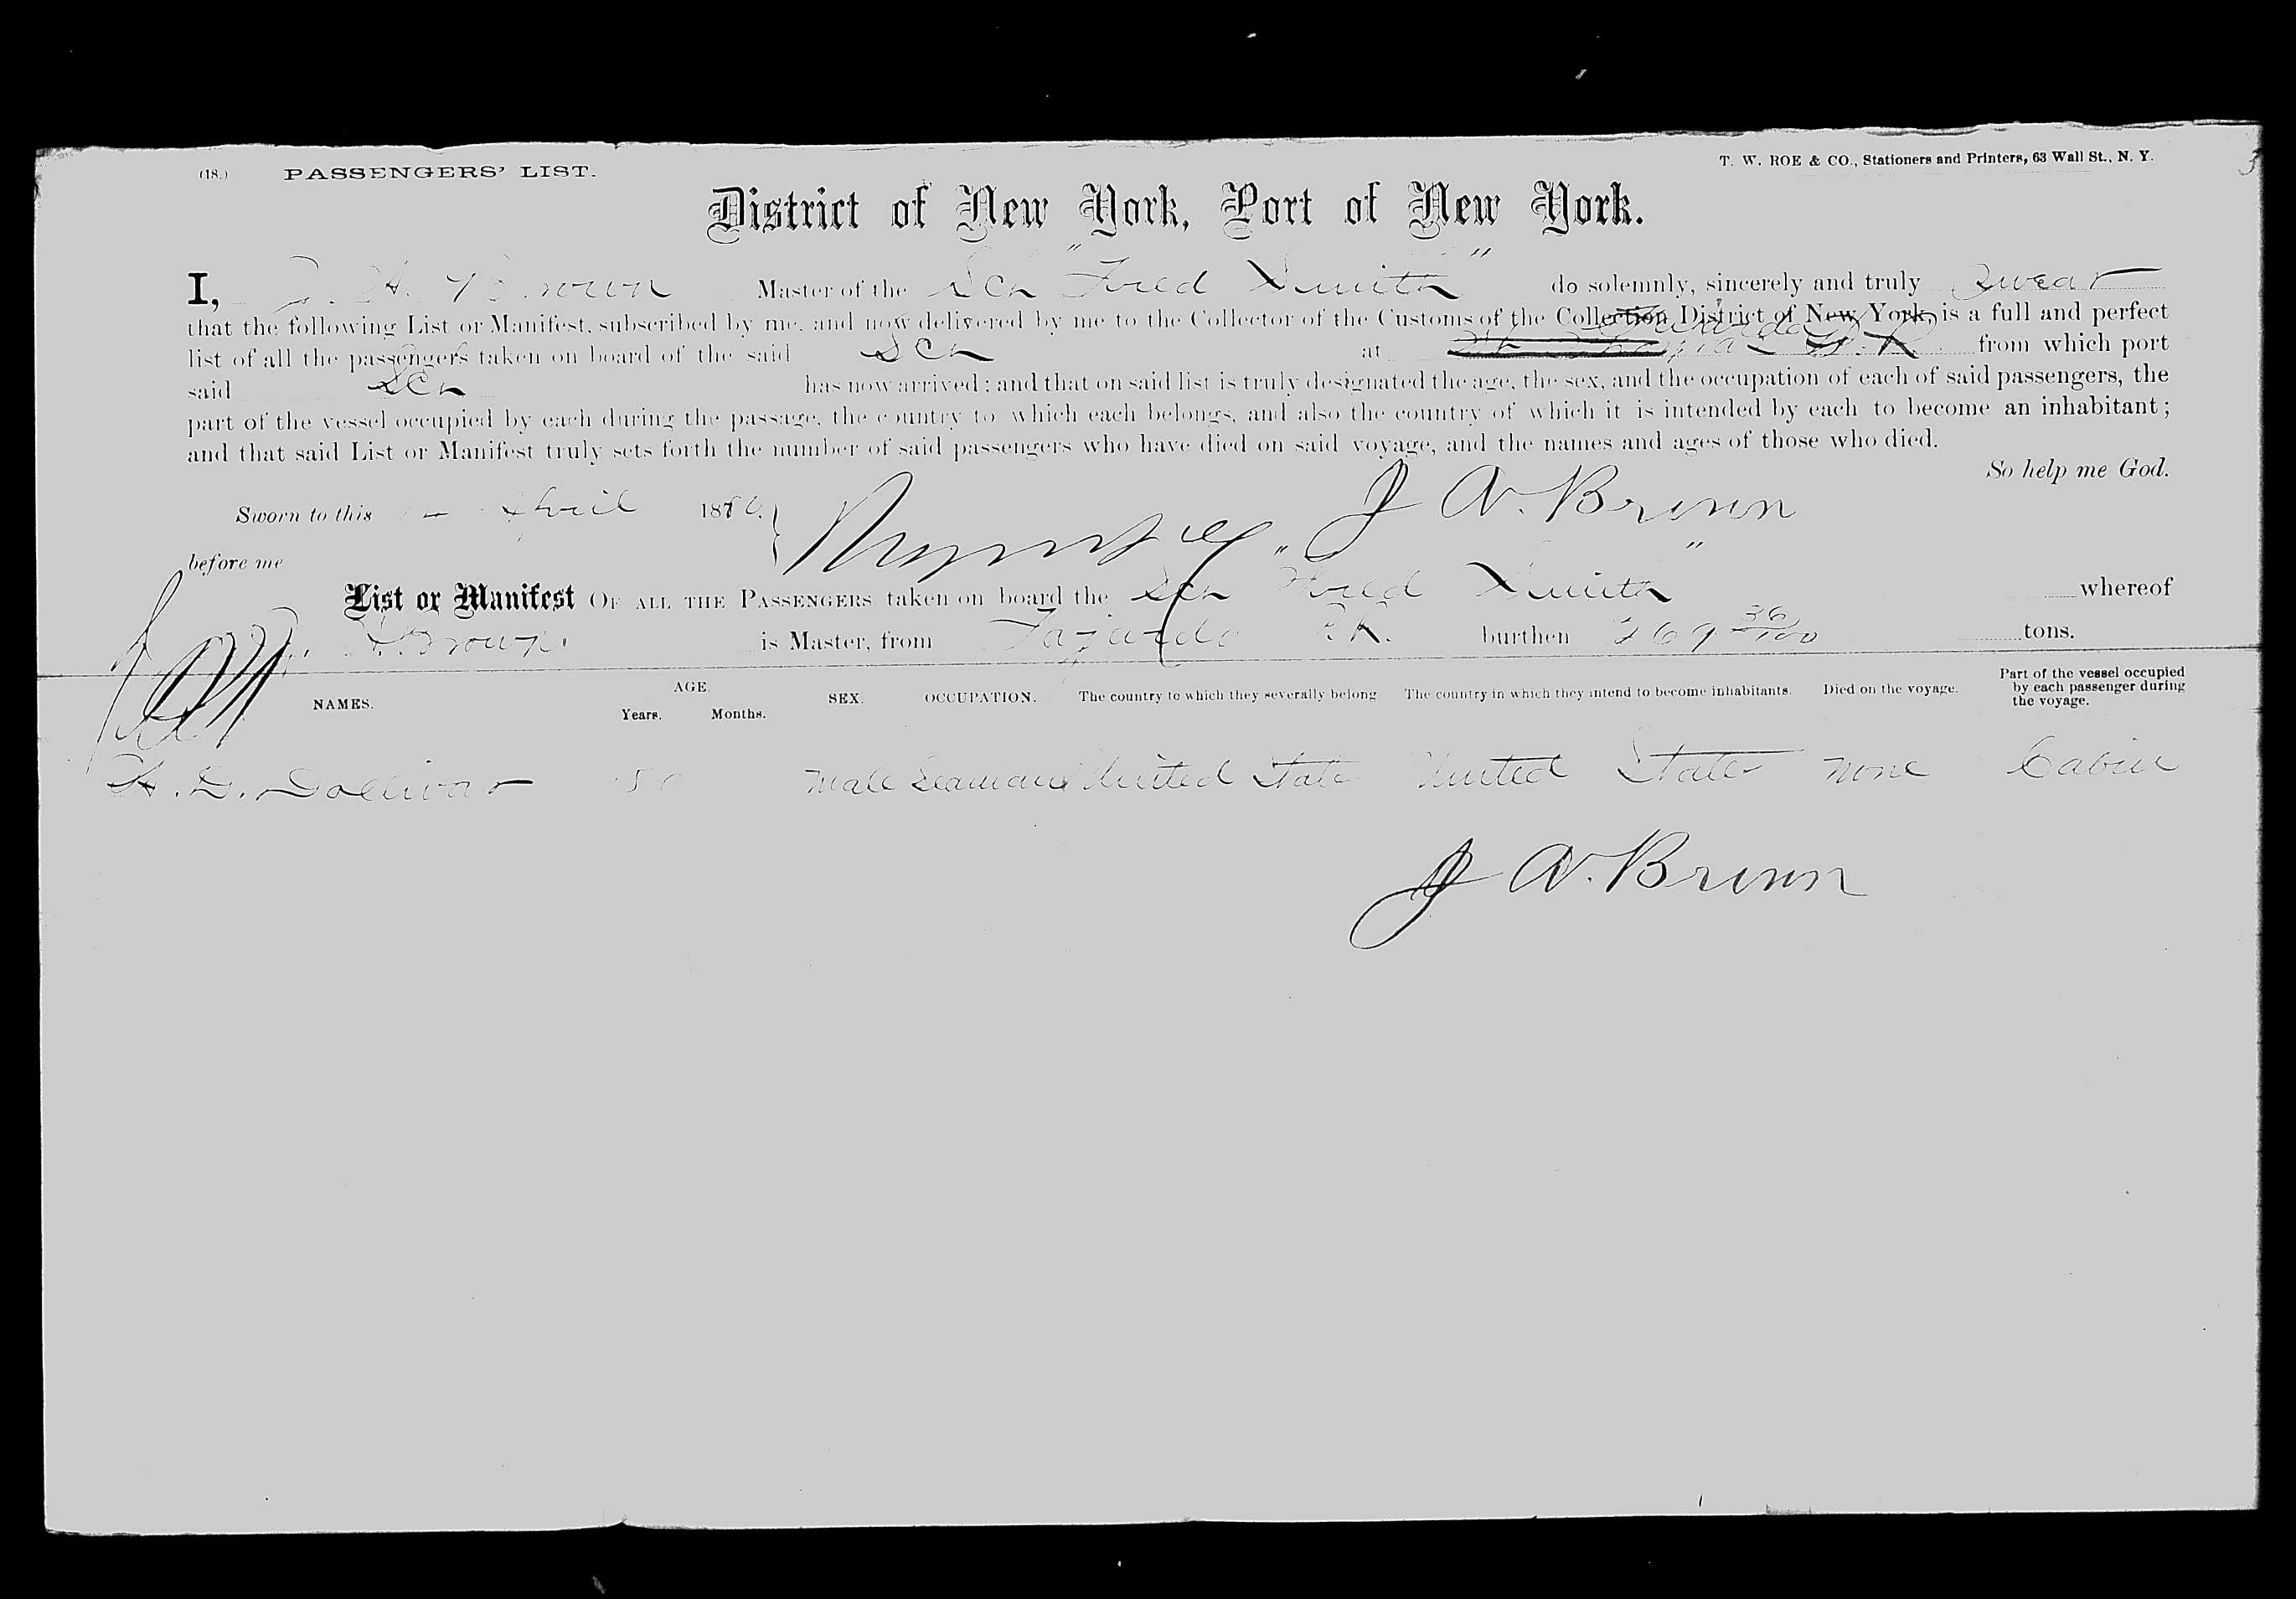 (18.) PASSENGERS' LIST.
T. W. ROE & CO., Stationers and Printers, 63 Wall St., N. Y.
District of New York, Port of New York.
I, J. A. Brown Master of the Sch "Fred Smith" do solemnly, sincerely and truly Swear
that the following List or Manifest, subscribed by me, and now delivered by me to the Collector of the Customs of the Collection District of New York, is a full and perfect
list of all the passengers taken on board of the said Sch at Fajardo P.R. from which port
said Sch has now arrived; and that on said list is truly designated the age, the sex, and the occupation of each of said passengers, the
part of the vessel occupied by each during the passage, the country to which each belongs, and also the country of which it is intended by each to become an inhabitant;
and that said List or Manifest truly sets forth the number of said passengers who have died on said voyage, and the names and ages of those who died.
So help me God.
Sworn to this April 18 J A. Brown
before me
List or Manifest OF ALL THE PASSENGERS taken on board the Sch "Fred Smith" whereof
Brown is Master, from Fajardo P.R. burthen 269 36/100 tons.
NAMES. AGE. Years. Months. SEX. OCCUPATION. The country to which they severally belong The country in which they intend to become inhabitants. Died on the voyage. Part of the vessel occupied by each passenger during the voyage.
H. D. Dollivar 50 Male Seaman United States United States none Cabin
J A. Brown